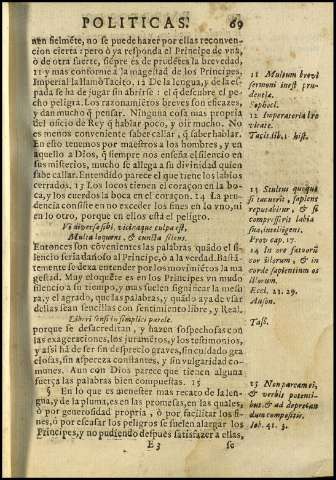 POLITICAS. 69
nen fielmēte, no se puede hazer por ellas reconven-
cion cierta: pero ò ya responda el Principe de vna,
ò de otra suerte, siēpre es de prudētes la brevedad,
11 y mas conforme a la magestad de los Principes,
Imperial la llamò Tacito. 12 De la lengua, y de la es-
pada se ha de jugar sin abrirse: el q̃ descubre el pe-
cho peligra. Los razonamiētos breves son eficazes,
y dan mucho q̃ pensar. Ninguna cosa mas propria
del oficio de Rey q̃ hablar poco, y oìr mucho. No
es menos conveniente saber callar, q̃ saber hablar.
En esto tenemos por maestros a los hombres, y en
aquello a Dios, q̃ siempre nos enseña el silencio en
sus misterios, mucho se allega a su divinidad quien
sabe callar. Entendido parece el que tiene los labios
cerrados. 13 Los locos tienen el coraçon en la bo-
ca, y los cuerdos la boca en el coraçon. 14 La pru-
dencia consiste en no exceder los fines en lo vno, ni
en lo otro, porque en ellos està el peligro.
Vt diversa sibi, vicinaque culpa est,
Multa loquens, & cuncta silens.
Entonces son convenientes las palabras quādo el si-
lencio seria dañoso al Principe, ò a la verdad. Bastā-
temente se dexa entender por los movimientos la ma-
gestad. Muy eloquēte es en los Principes vn mudo
silencio a su tiempo, y mas suelen significar la mesu-
ra, y el agrado, que las palabras, y quādo aya de vsar
dellas sean sencillas con sentimiento libre, y Real.
Liberi sensi in simplici parole.
porque se desacreditan, y hazen sospechosas con
las exageraciones, los juramētos, y los testimonios,
y assi hà de ser sin desprecio graves, sin cuidado gra-
ciosas, sin aspereza constantes, y sin vulgaridad co-
munes. Aun con Dios parece que tienen alguna
fuerça las palabras bien compuestas. 15
§ En lo que es menester mas recato de la len-
gua, y de la pluma, es en las promesas, en las quales,
ò por generosidad propria, ò por facilitar los fi-
nes, ò por escusar los peligros se suelen alargar los
Principes, y no pudiendo despues satisfazer a ellas,
E 3 se
11 Multum brevi
sermoni inest pru-
dentia.
Sophocl.
12 Imperatoria bre-
vitate.
Tacit. lib. 1. hist.
13 Stultus quoque
si tacuerit, sapiens
reputabitur, & si
compresserit labia
sua, intelligens.
Prov. cap. 17.
14 In ore fatuorũ
cor illorum, & in
corde sapientium os
illorum.
Eccl. 21. 29.
Auson.
Tass.
15 Non parcam ei,
& verbis potenti-
bus, & ad deprecan-
dum compositis.
Iob. 41. 3.